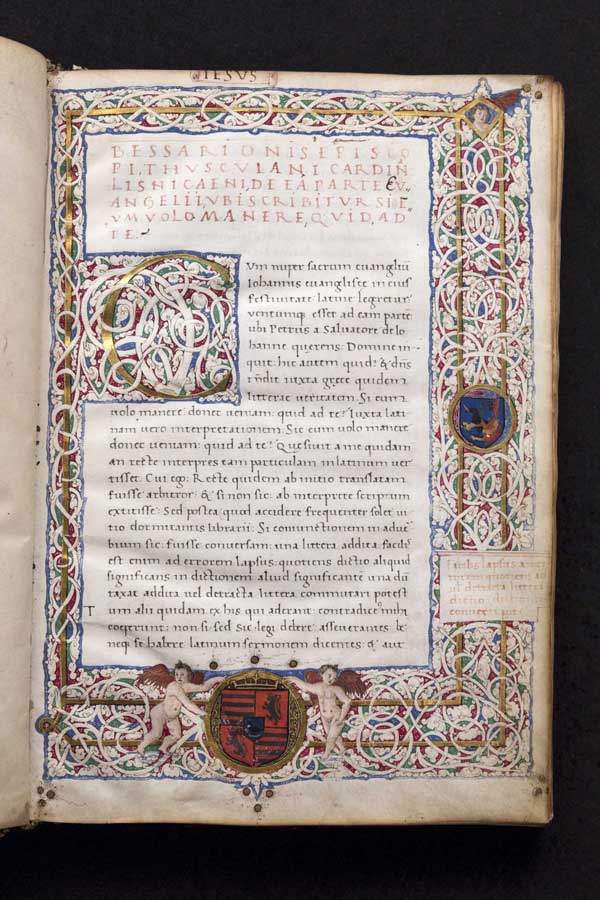 IESVS
BESSARIONIS EPISCO
PI, THVSCVLANI CARDIÑ
LIS NICAENI, DE EA PARTE EV
ANGELII, VBI SCRIBITVR SI E
VM VOLO MANERE, QVID, AD
TE:
Cum nuper sacrum euangliũ
Iohannis euangliste in eius
festiuitate latine legeretur
ventumque esset ad eam partẽ
ubi Petrus a Saluatore de Io
hanne querens: Domine in
quit: hic autem quid? & dñs
rñdit iuxta grece quidem
litterae veritatem. Si eum
volo manere: donec veniam: quid ad te? Iuxta lati
nam uero interpretationem: Sic eum volo manere
donec veniam: quid ad te? Quesiuit a me quidam
an recte interpres eam particulam in latinum ver
tisset. Cui ego: Recte quidem ab initio translatam
fuisse arbitror: & si non sic ab interprete scriptum
extitisse. Sed postea quod accidere frequenter solet vi
tio dormitantis librarii: Si coniunctionem in aduer
bium sic fuisse conuersam: una littera addita: facilis
est enim ad errorem lapsus: quotiens dictio aliquid
significans in dictionem aliud significantẽ una dũ
taxat addita vel detracta littera commutari potest
tum alii quidam ex his qui aderant: contradice mihi
ceperunt: non si sed sic legi debere asseuerantes be
neque se habere latinum sermonem dicentes: & aut
facilis lapsus a
quotiens
detracta littera